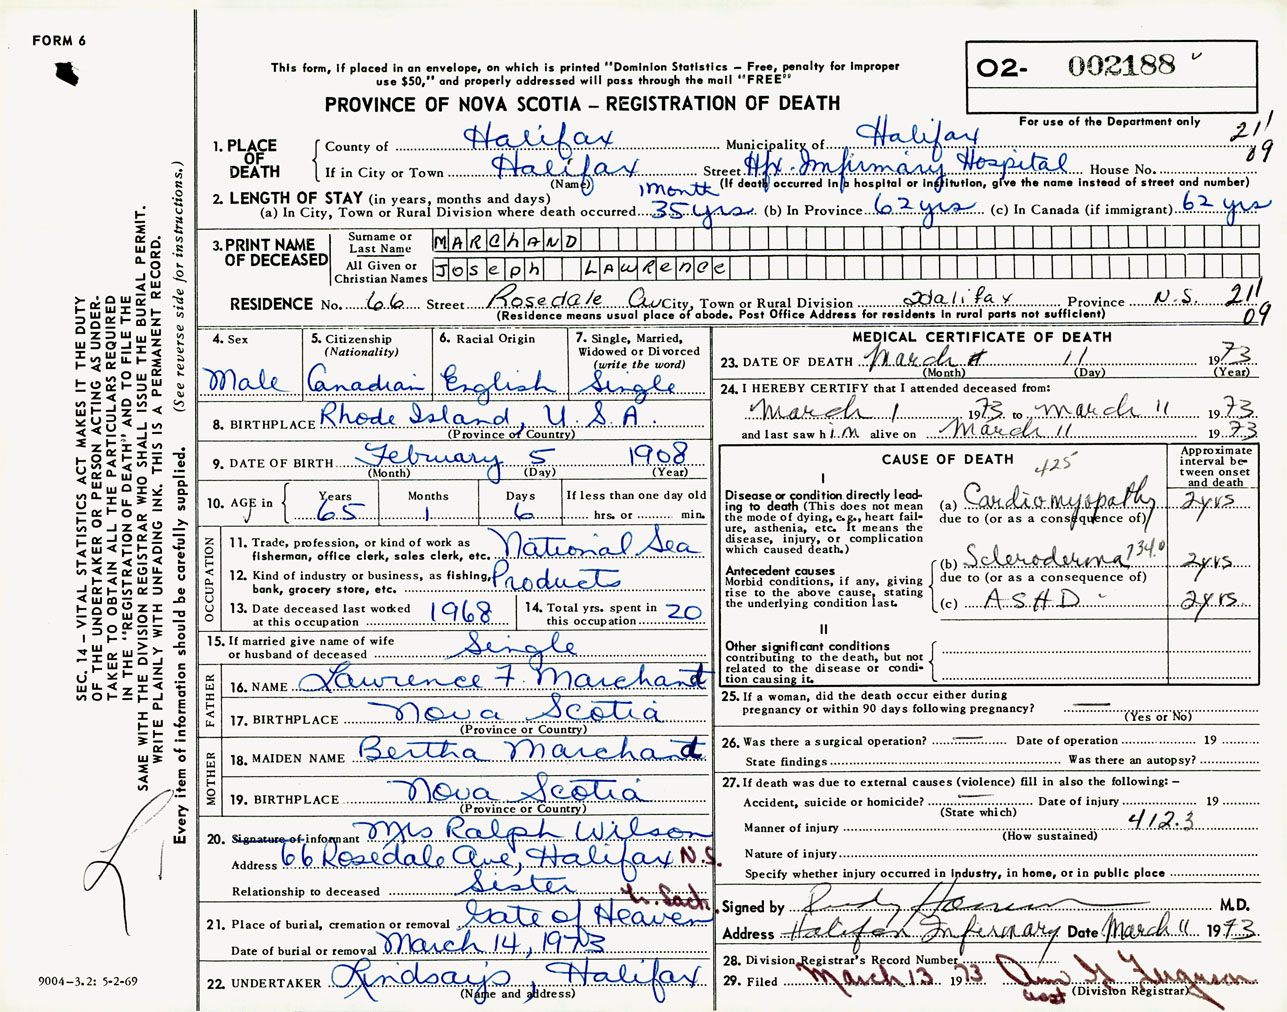 FORM 6
This form, if placed in an envelope, on which is printed "Dominion Statistics – Free, penalty for improper
use $50," and properly addressed will pass through the mail "FREE"
PROVINCE OF NOVA SCOTIA – REGISTRATION OF DEATH
O2- 002188
For use of the Department only
211
09
1. PLACE OF DEATH
County of Halifax Municipality of Halifax
If in City or Town Halifax Street Hfx. Infirmary Hospital House No.
(Name) (If death occurred in a hospital or institution, give the name instead of street and number)
2. LENGTH OF STAY (in years, months and days) 1 month
(a) In City, Town or Rural Division where death occurred 35 yrs (b) In Province 62 yrs (c) In Canada (if immigrant) 62 yrs
3. PRINT NAME OF DECEASED
Surname or Last Name MARChAND
All Given or Christian Names Joseph LAWRENCE
RESIDENCE No. 66 Street Rosedale Av City, Town or Rural Division Halifax Province N.S. 211
(Residence means usual place of abode. Post Office Address for residents in rural parts not sufficient) 09
4. Sex
Male
5. Citizenship
(Nationality)
Canadian
6. Racial Origin
English
7. Single, Married,
Widowed or Divorced
(write the word)
Single
8. BIRTHPLACE Rhode Island, U.S.A.
(Province or Country)
9. DATE OF BIRTH February 5 1908
(Month) (Day) (Year)
10. AGE in Years 65 Months 1 Days 6 If less than one day old
hrs. or min.
OCCUPATION
11. Trade, profession, or kind of work as
fisherman, office clerk, sales clerk, etc. National Sea
12. Kind of industry or business, as fishing,
bank, grocery store, etc. Products
13. Date deceased last worked
at this occupation 1968
14. Total yrs. spent in
this occupation 20
15. If married give name of wife
or husband of deceased Single
FATHER
16. NAME Lawrence F. Marchand
17. BIRTHPLACE Nova Scotia
(Province or Country)
MOTHER
18. MAIDEN NAME Bertha Marchand
19. BIRTHPLACE Nova Scotia
(Province or Country)
20. Signature of informant Mrs Ralph Wilson
Address 66 Rosedale Ave, Halifax N.S.
Relationship to deceased Sister
21. Place of burial, cremation or removal Gate of Heaven L. Sack.
Date of burial or removal March 14, 1973
22. UNDERTAKER Lindsay's, Halifax
(Name and address)
MEDICAL CERTIFICATE OF DEATH
23. DATE OF DEATH March 11 1973
(Month) (Day) (Year)
24. I HEREBY CERTIFY that I attended deceased from:
March 1 1973 to March 11 1973
and last saw him alive on March 11 1973
CAUSE OF DEATH 425
Approximate
interval be-
tween onset
and death
I
Disease or condition directly lead-
ing to death (This does not
mean the mode of dying, e.g., heart fail-
ure, asthenia, etc. It means the
disease, injury, or complication
which caused death.)
(a) Cardiomyopathy 2 yrs
due to (or as a consequence of)
Antecedent causes
Morbid conditions, if any, giving
rise to the above cause, stating
the underlying condition last.
(b) Scleroderma 734.0 2 yrs
due to (or as a consequence of)
(c) A.S.H.D. 2 yrs.
II
Other significant conditions
contributing to the death, but not
related to the disease or condi-
tion causing it.
25. If a woman, did the death occur either during
pregnancy or within 90 days following pregnancy? —
(Yes or No)
26. Was there a surgical operation? — Date of operation 19
State findings Was there an autopsy?
27. If death was due to external causes (violence) fill in also the following: –
Accident, suicide or homicide? — Date of injury 19
(State which)
412.3
Manner of injury
(How sustained)
Nature of injury
Specify whether injury occurred in industry, in home, or in public place
Signed by M.D.
Address Halifax Infirmary Date March 11 1973
28. Division Registrar's Record Number
29. Filed March 13 1973 Ann G Ferguson
asst (Division Registrar)
SEC. 14 – VITAL STATISTICS ACT MAKES IT THE DUTY
OF THE UNDERTAKER OR PERSON ACTING AS UNDER-
TAKER TO OBTAIN ALL THE PARTICULARS REQUIRED
IN THE "REGISTRATION OF DEATH" AND TO FILE THE
SAME WITH THE DIVISION REGISTRAR WHO SHALL ISSUE THE BURIAL PERMIT.
WRITE PLAINLY WITH UNFADING INK. THIS IS A PERMANENT RECORD.
Every item of information should be carefully supplied. (See reverse side for instructions.)
9004–3.2: 5-2-69